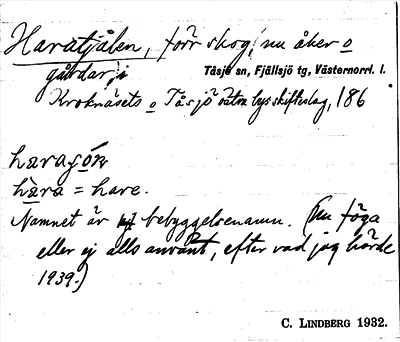 Haratjälen, förr skog, nu åker o
gårdar, i Tåsjö sn, Fjällsjö tg, Västernorrl. l.
Kroknäsets o Tåsjö östra bys skifteslag, 186
hara
hàra = hare.
Namnet är ej bebyggelsenamn. (Nu föga
eller ej alls använt, efter vad jag hörde
1939.)
C. LINDBERG 1932.